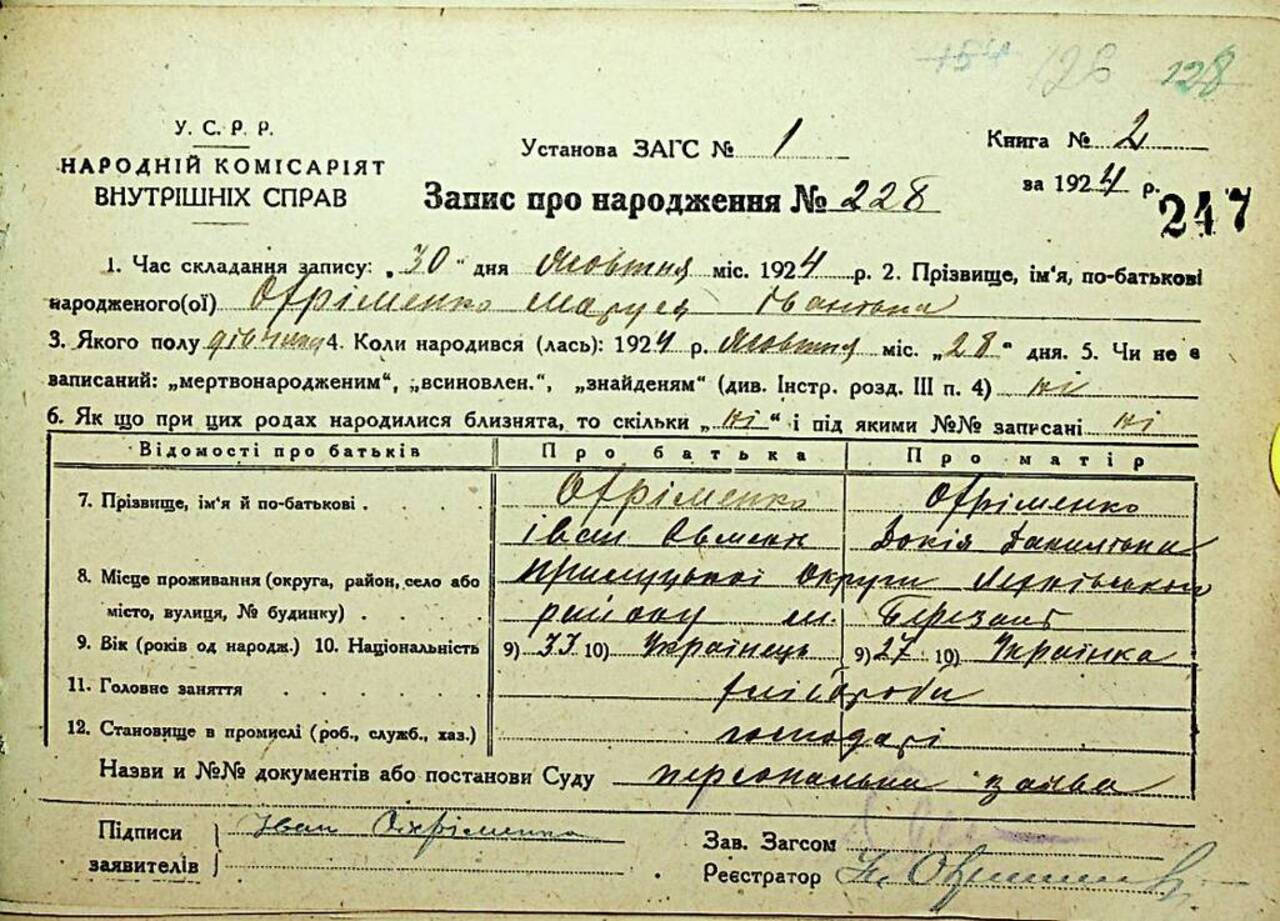 154 128 128
У. С. Р. Р.
НАРОДНІЙ КОМІСАРІЯТ
ВНУТРІШНІХ СПРАВ
Установа ЗАГС № 1
Книга № 2
за 1924 р.
Запис про народження № 228
247
1. Час складання запису: „30" дня Жовтня міс. 1924 р. 2. Прізвище, ім'я, по-батькові
народженого(ої) Охріменко Маруся Івановна
3. Якого полу дівчина 4. Коли народився (лась): 1924 р. Жовтня міс. „28" дня. 5. Чи не є
записаний: „мертвонародженим", „всиновлен.", „знайденям" (див. Інстр. розд. III п. 4) ні
6. Як що при цих родах народилися близнята, то скільки „ні" і під якими №№ записані ні
Відомості про батьків Про батька Про матір
7. Прізвище, ім'я й по-батькові . . . . Охріменко Охріменко
Іван Докія
8. Місце проживання (округа, район, село або Прилуцької Округи
місто, вулиця, № будинку) . . . . району м. Березань
9. Вік (років од народж.) 10. Національність 9) 33 10) Українець 9) 27 10) Українка
11. Головне заняття . . . . . . хлібороби
12. Становище в промислі (роб., служб., хаз.) господарі
Назви и №№ документів або постанови Суду персональна заява
Підписи Іван Охріменко
заявителів
Зав. Загсом
Реєстратор